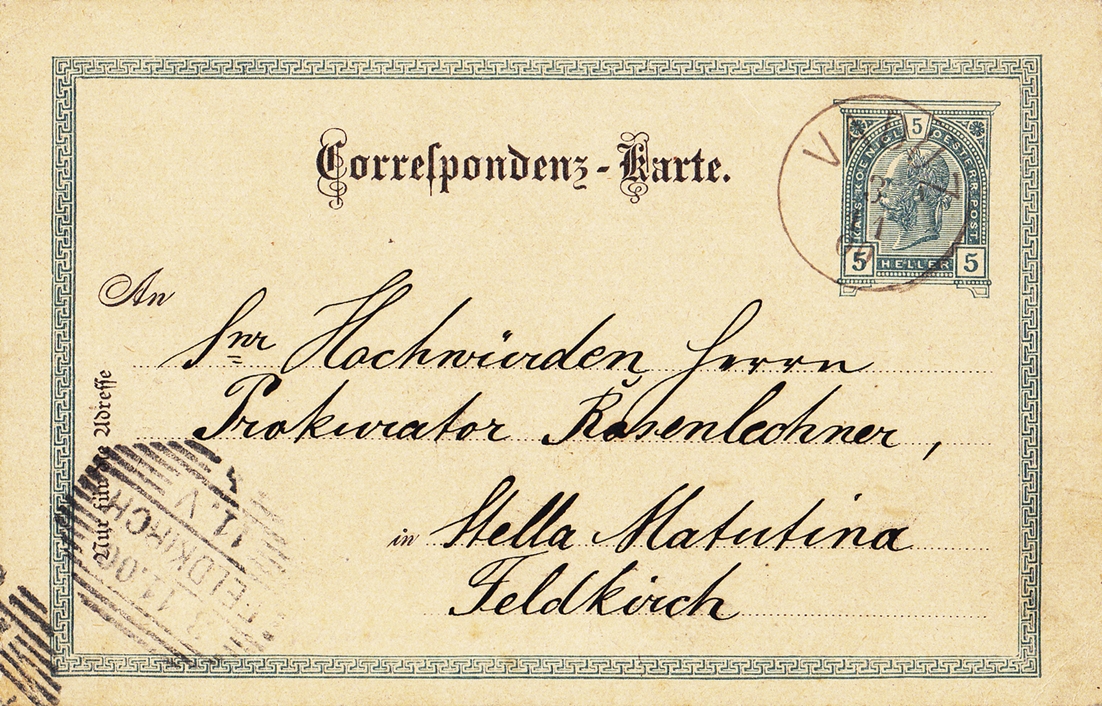 Correspondenz-Karte.
5
KAIS. KOENIGL. OESTERR. POST.
5 HELLER 5
An
Snr Hochwürden Herrn
Prokurator Rosenlechner,
in Stella Matutina
Feldkirch
Nur für die Adresse
FELDKIRCH
11. V